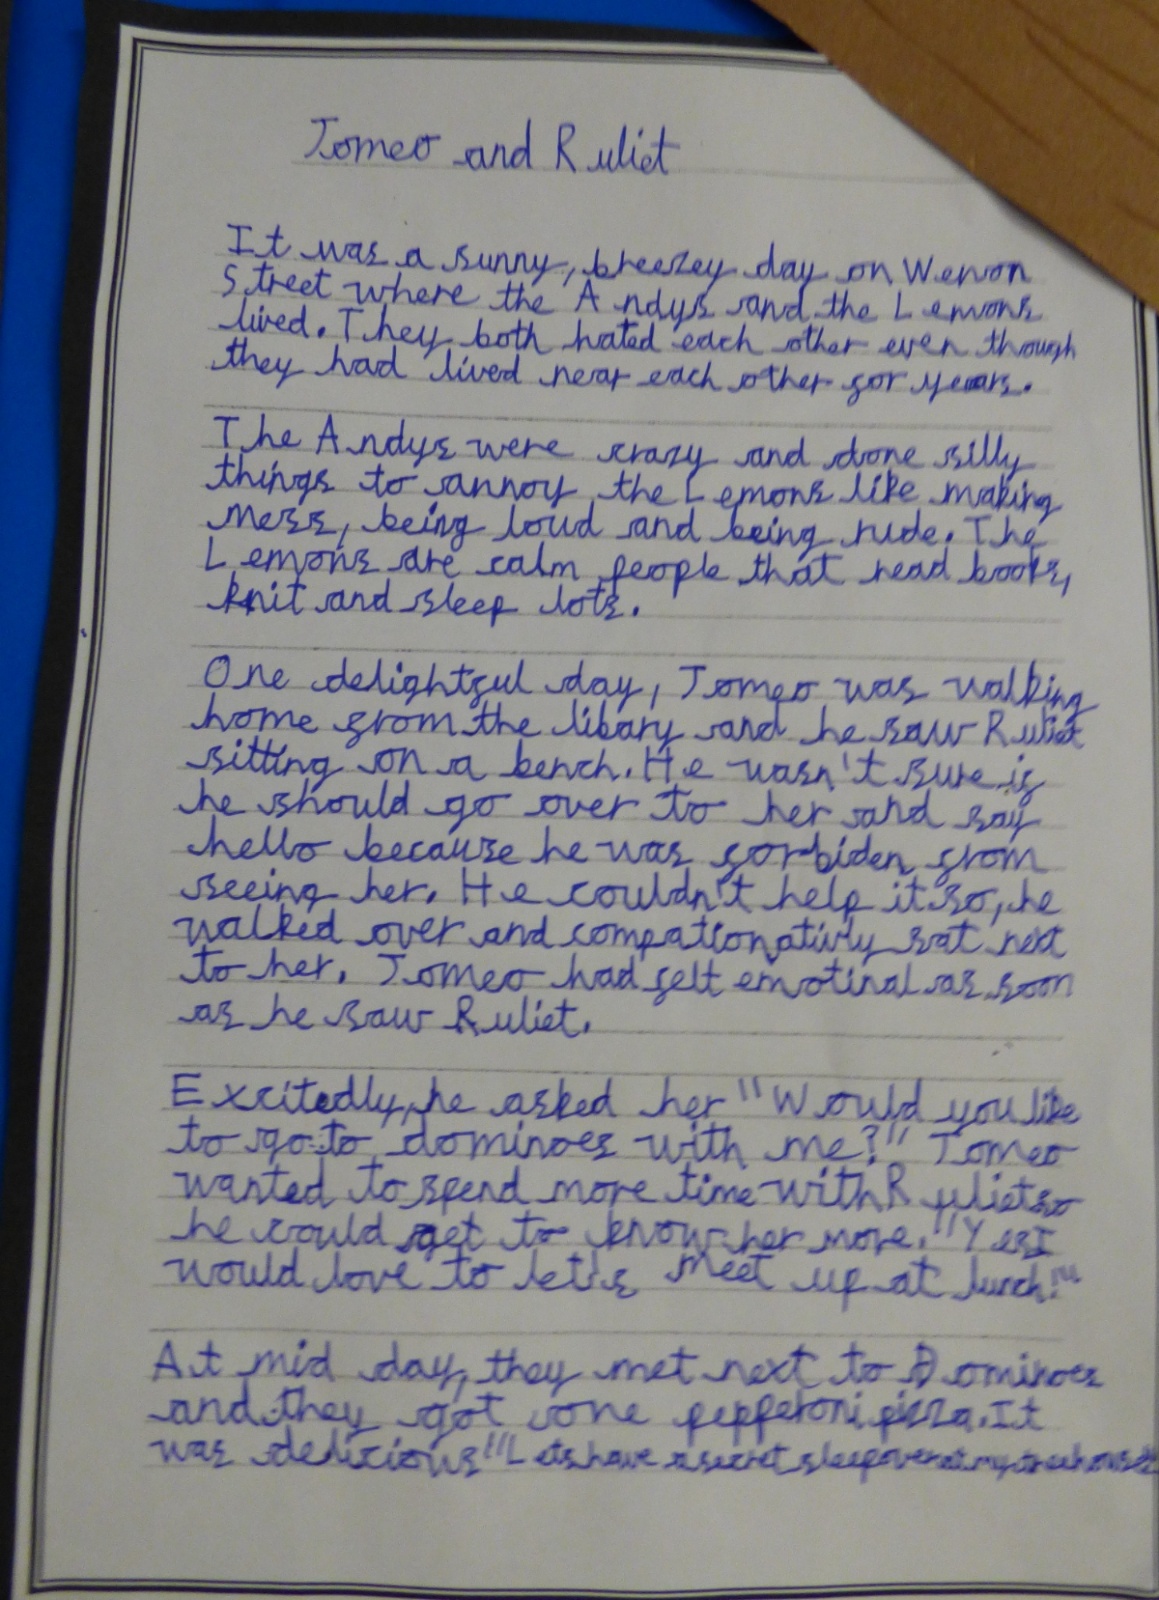 Tomeo and Ruliet
It was a sunny, breezey day on Wenon
Street where the Andys and the Lemons
lived. They both hated each other even though
they had lived near each other for years.
The Andys were crazy and done silly
things to annoy the Lemons like making
mess, being loud and being rude. The
Lemons are calm people that read books,
knit and sleep lots.
One delightful day, Tomeo was walking
home from the libary and he saw Ruliet
sitting on a bench. He wasn't sure if
he should go over to her and say
hello because he was forbiden from
seeing her. He couldn't help it so, he
walked over and compationativly sat next
to her. Tomeo had felt emotinal as soon
as he saw Ruliet.
Excitedly, he asked her "Would you like
to go to dominoes with me?" Tomeo
wanted to spend more time with Ruliet so
he could get to know her more. "Yes I
would love to let's meet up at lunch!"
At mid day, they met next to Dominoes
and they got one pepperoni pizza. It
was delicious "Lets have a secret sleepover at my treehouse